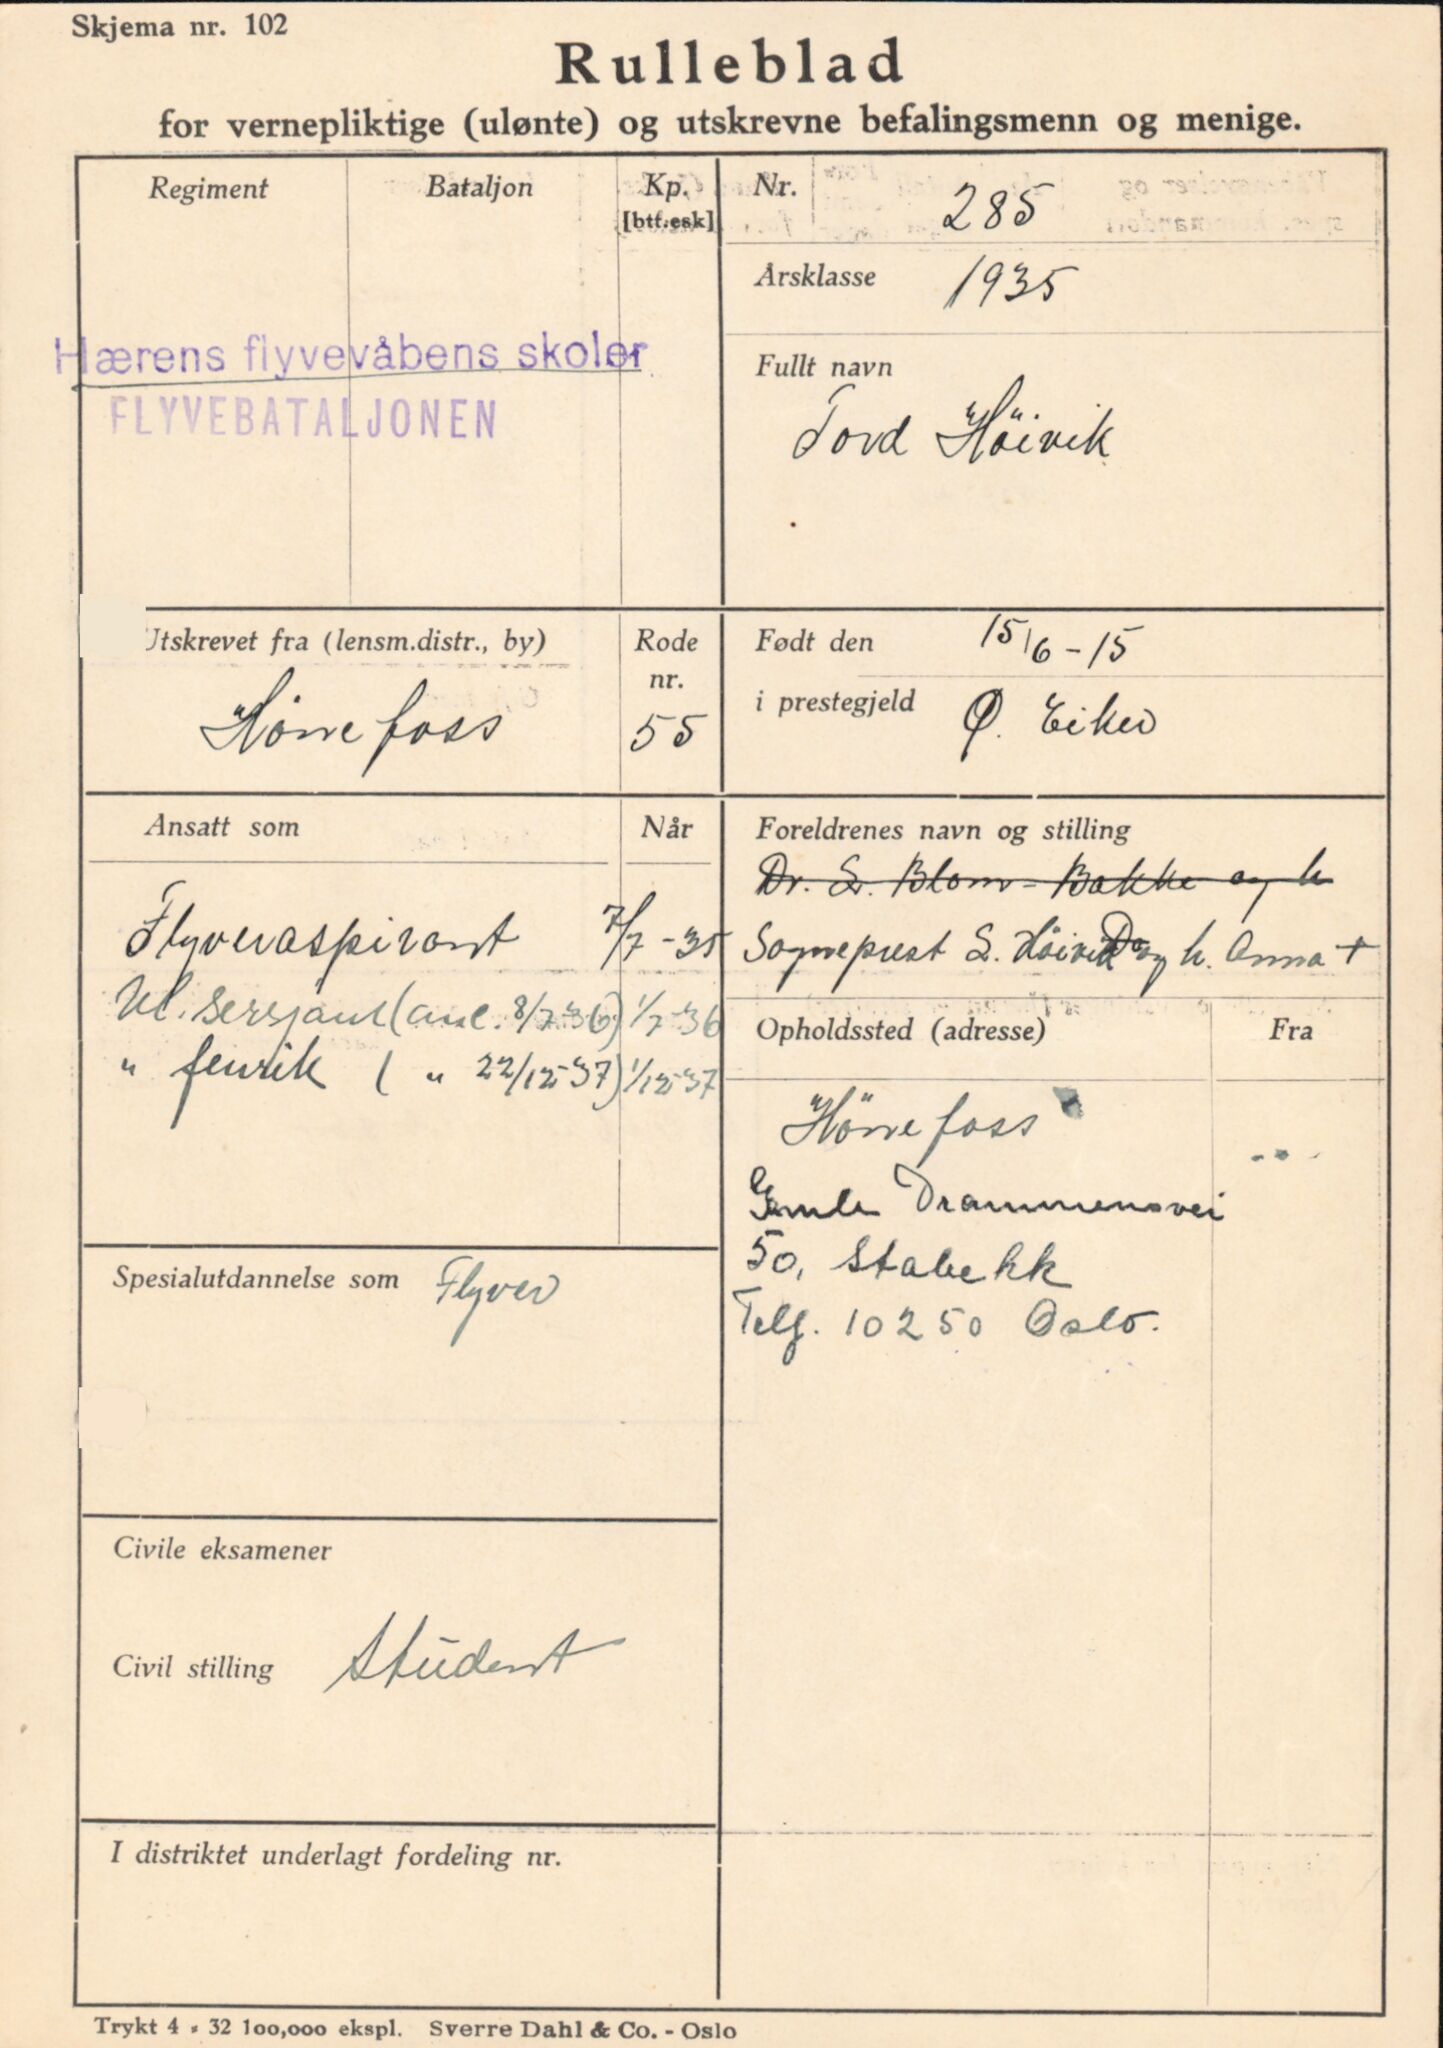 Skjema nr. 102
Rulleblad
for vernepliktige (ulønte) og utskrevne befalingsmenn og menige.
Regiment
Bataljon
Kp.
[btt.esk]
Hærens flyvevåbens skoler
FLYVEBATALJONEN
Nr. 285
Årsklasse 1935
Fullt navn
Tord Höivik
Utskrevet fra (lensm.distr., by)
Hönefoss
Rode
nr.
55
Født den 15/6-15
i prestegjeld Ø. Eiker
Ansatt som
Når
Flyveraspirant 7/7-35
Ul. sersjant (anc. 8/7-36) 1/7-36
" fenrik ( " 22/12-37) 1/12-37
Foreldrenes navn og stilling
Dr. S. Blom-Bakke og h
Sogneprest S. Höivik og h. Anna +
Opholdssted (adresse)
Fra
Hönefoss
Gamle Drammensvei
50, Stabekk
Telf. 10250 Oslo.
Spesialutdannelse som Flyver
Civile eksamener
Civil stilling Student
I distriktet underlagt fordeling nr.
Trykt 4 - 32 100,000 ekspl. Sverre Dahl & Co. - Oslo